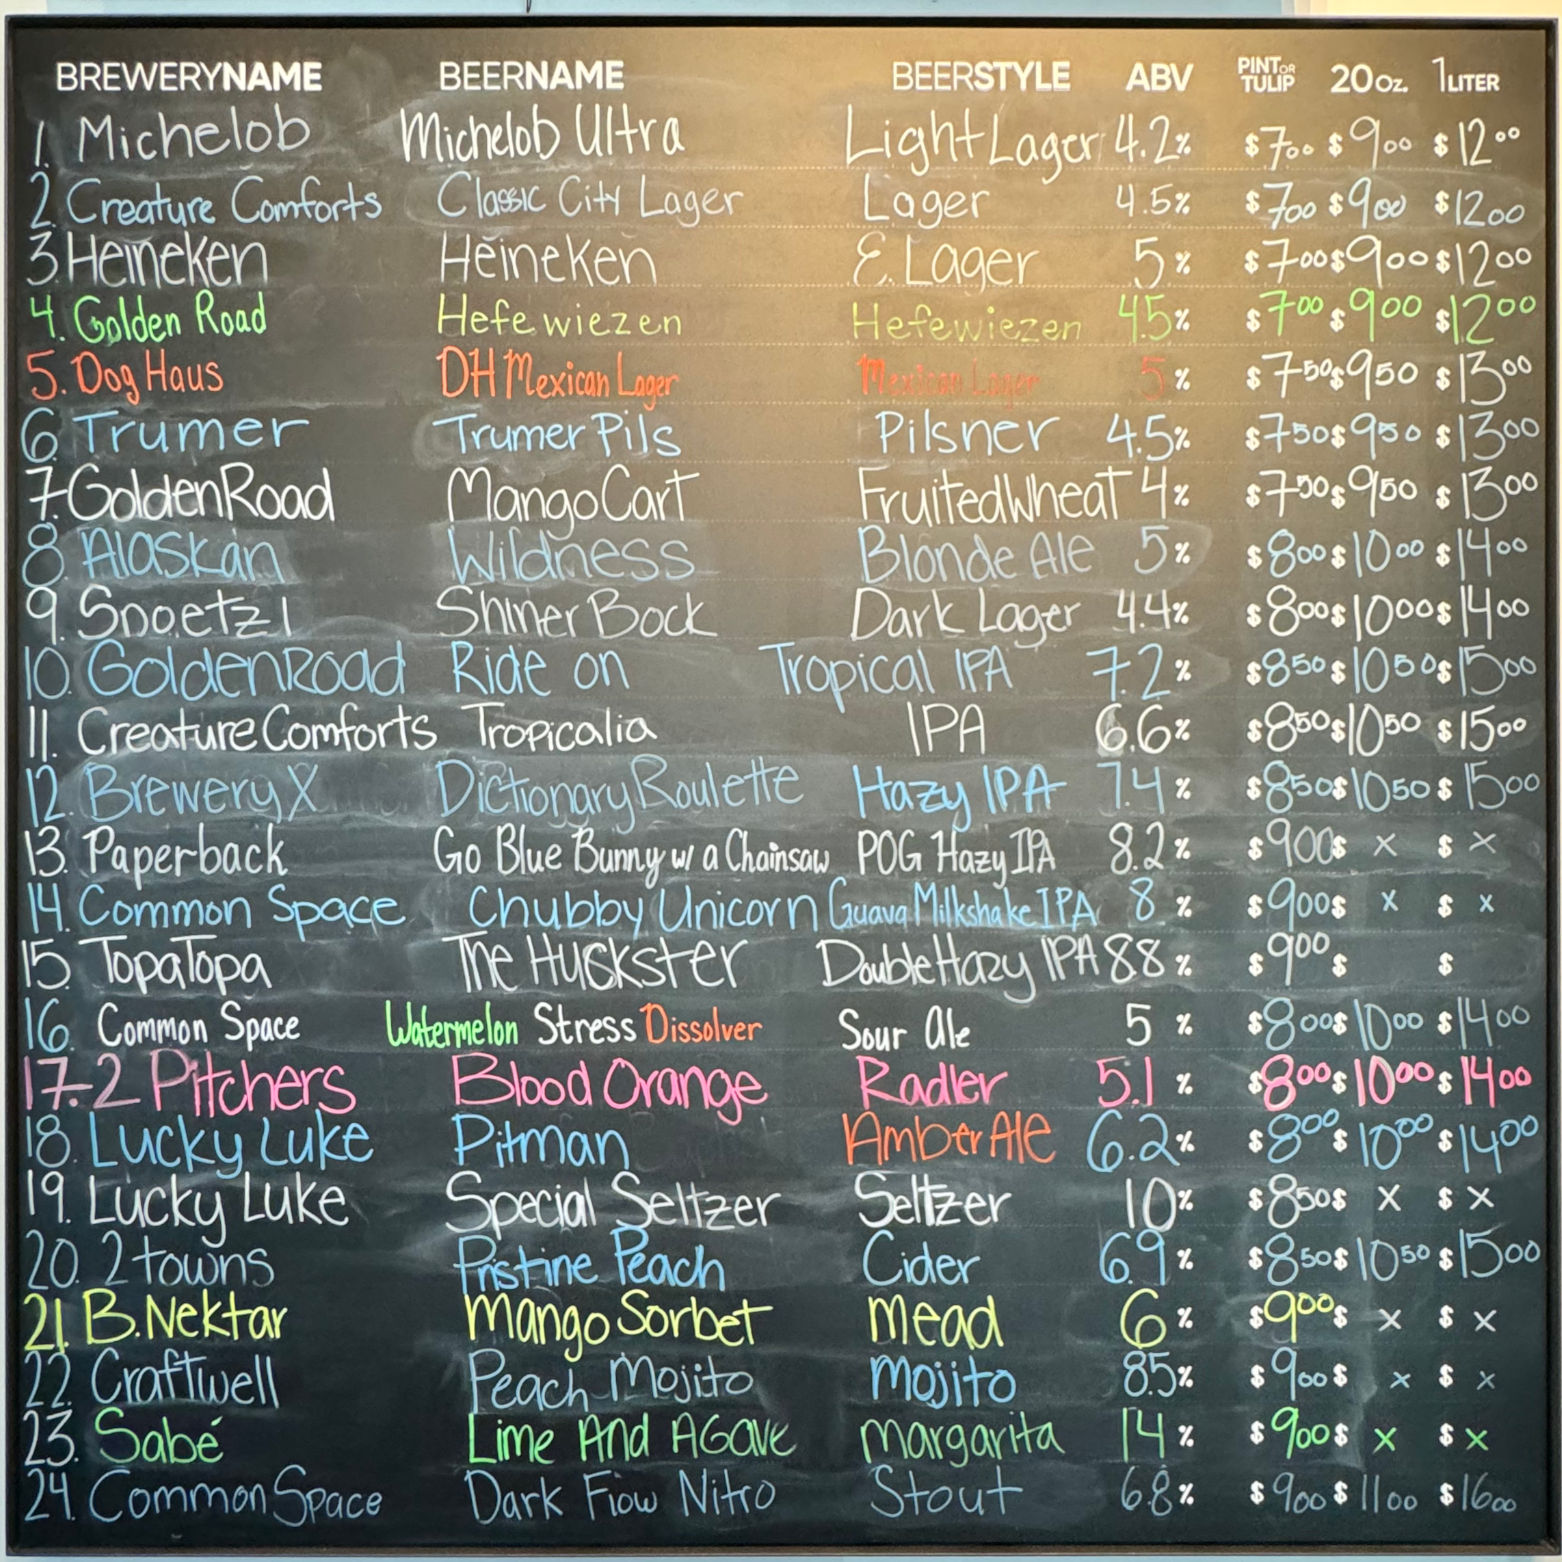 BREWERYNAME BEERNAME BEERSTYLE ABV PINT OR TULIP 20 OZ. 1 LITER
1. Michelob Michelob Ultra Light Lager 4.2% $7.00 $9.00 $12.00
2. Creature Comforts Classic City Lager Lager 4.5% $700 $900 $1200
3. Heineken Heineken E. Lager 5% $700 $900 $1200
4. Golden Road Hefewiezen Hefewiezen 4.5% $700 $900 $1200
5. Dog Haus DH Mexican Lager Mexican Lager 5% $750 $950 $1300
6. Trumer Trumer Pils Pilsner 4.5% $750 $950 $1300
7. Golden Road Mango Cart Fruited Wheat 4% $750 $950 $1300
8. Alaskan Wildness Blonde Ale 5% $800 $1000 $1400
9. Spoetzl Shiner Bock Dark Lager 4.4% $800 $1000 $1400
10. Golden Road Ride on Tropical IPA 7.2% $850 $1050 $1500
11. Creature Comforts Tropicalia IPA 6.6% $850 $1050 $1500
12. Brewery X Dictionary Roulette Hazy IPA 7.4% $850 $1050 $1500
13. Paperback Go Blue Bunny w/ a Chainsaw POG Hazy IPA 8.2% $900 $ x $ x
14. Common Space Chubby Unicorn Guava Milkshake IPA 8% $900 $ x $ x
15. TopaTopa The Huckster Double Hazy IPA 8.8% $900 $ $
16. Common Space Watermelon Stress Dissolver Sour Ale 5% $800 $1000 $1400
17. 2 Pitchers Blood Orange Radler 5.1% $800 $1000 $1400
18. Lucky Luke Pitman Amber Ale 6.2% $800 $1000 $1400
19. Lucky Luke Special Seltzer Seltzer 10% $850 $ x $ x
20. 2 towns Pristine Peach Cider 6.9% $850 $1050 $1500
21. B. Nektar Mango Sorbet Mead 6% $900 $ x $ x
22. Craftwell Peach Mojito Mojito 8.5% $900 $ x $ x
23. Sabé Lime And AGave Margarita 14% $900 $ x $ x
24. Common Space Dark Flow Nitro Stout 6.8% $900 $1100 $1600